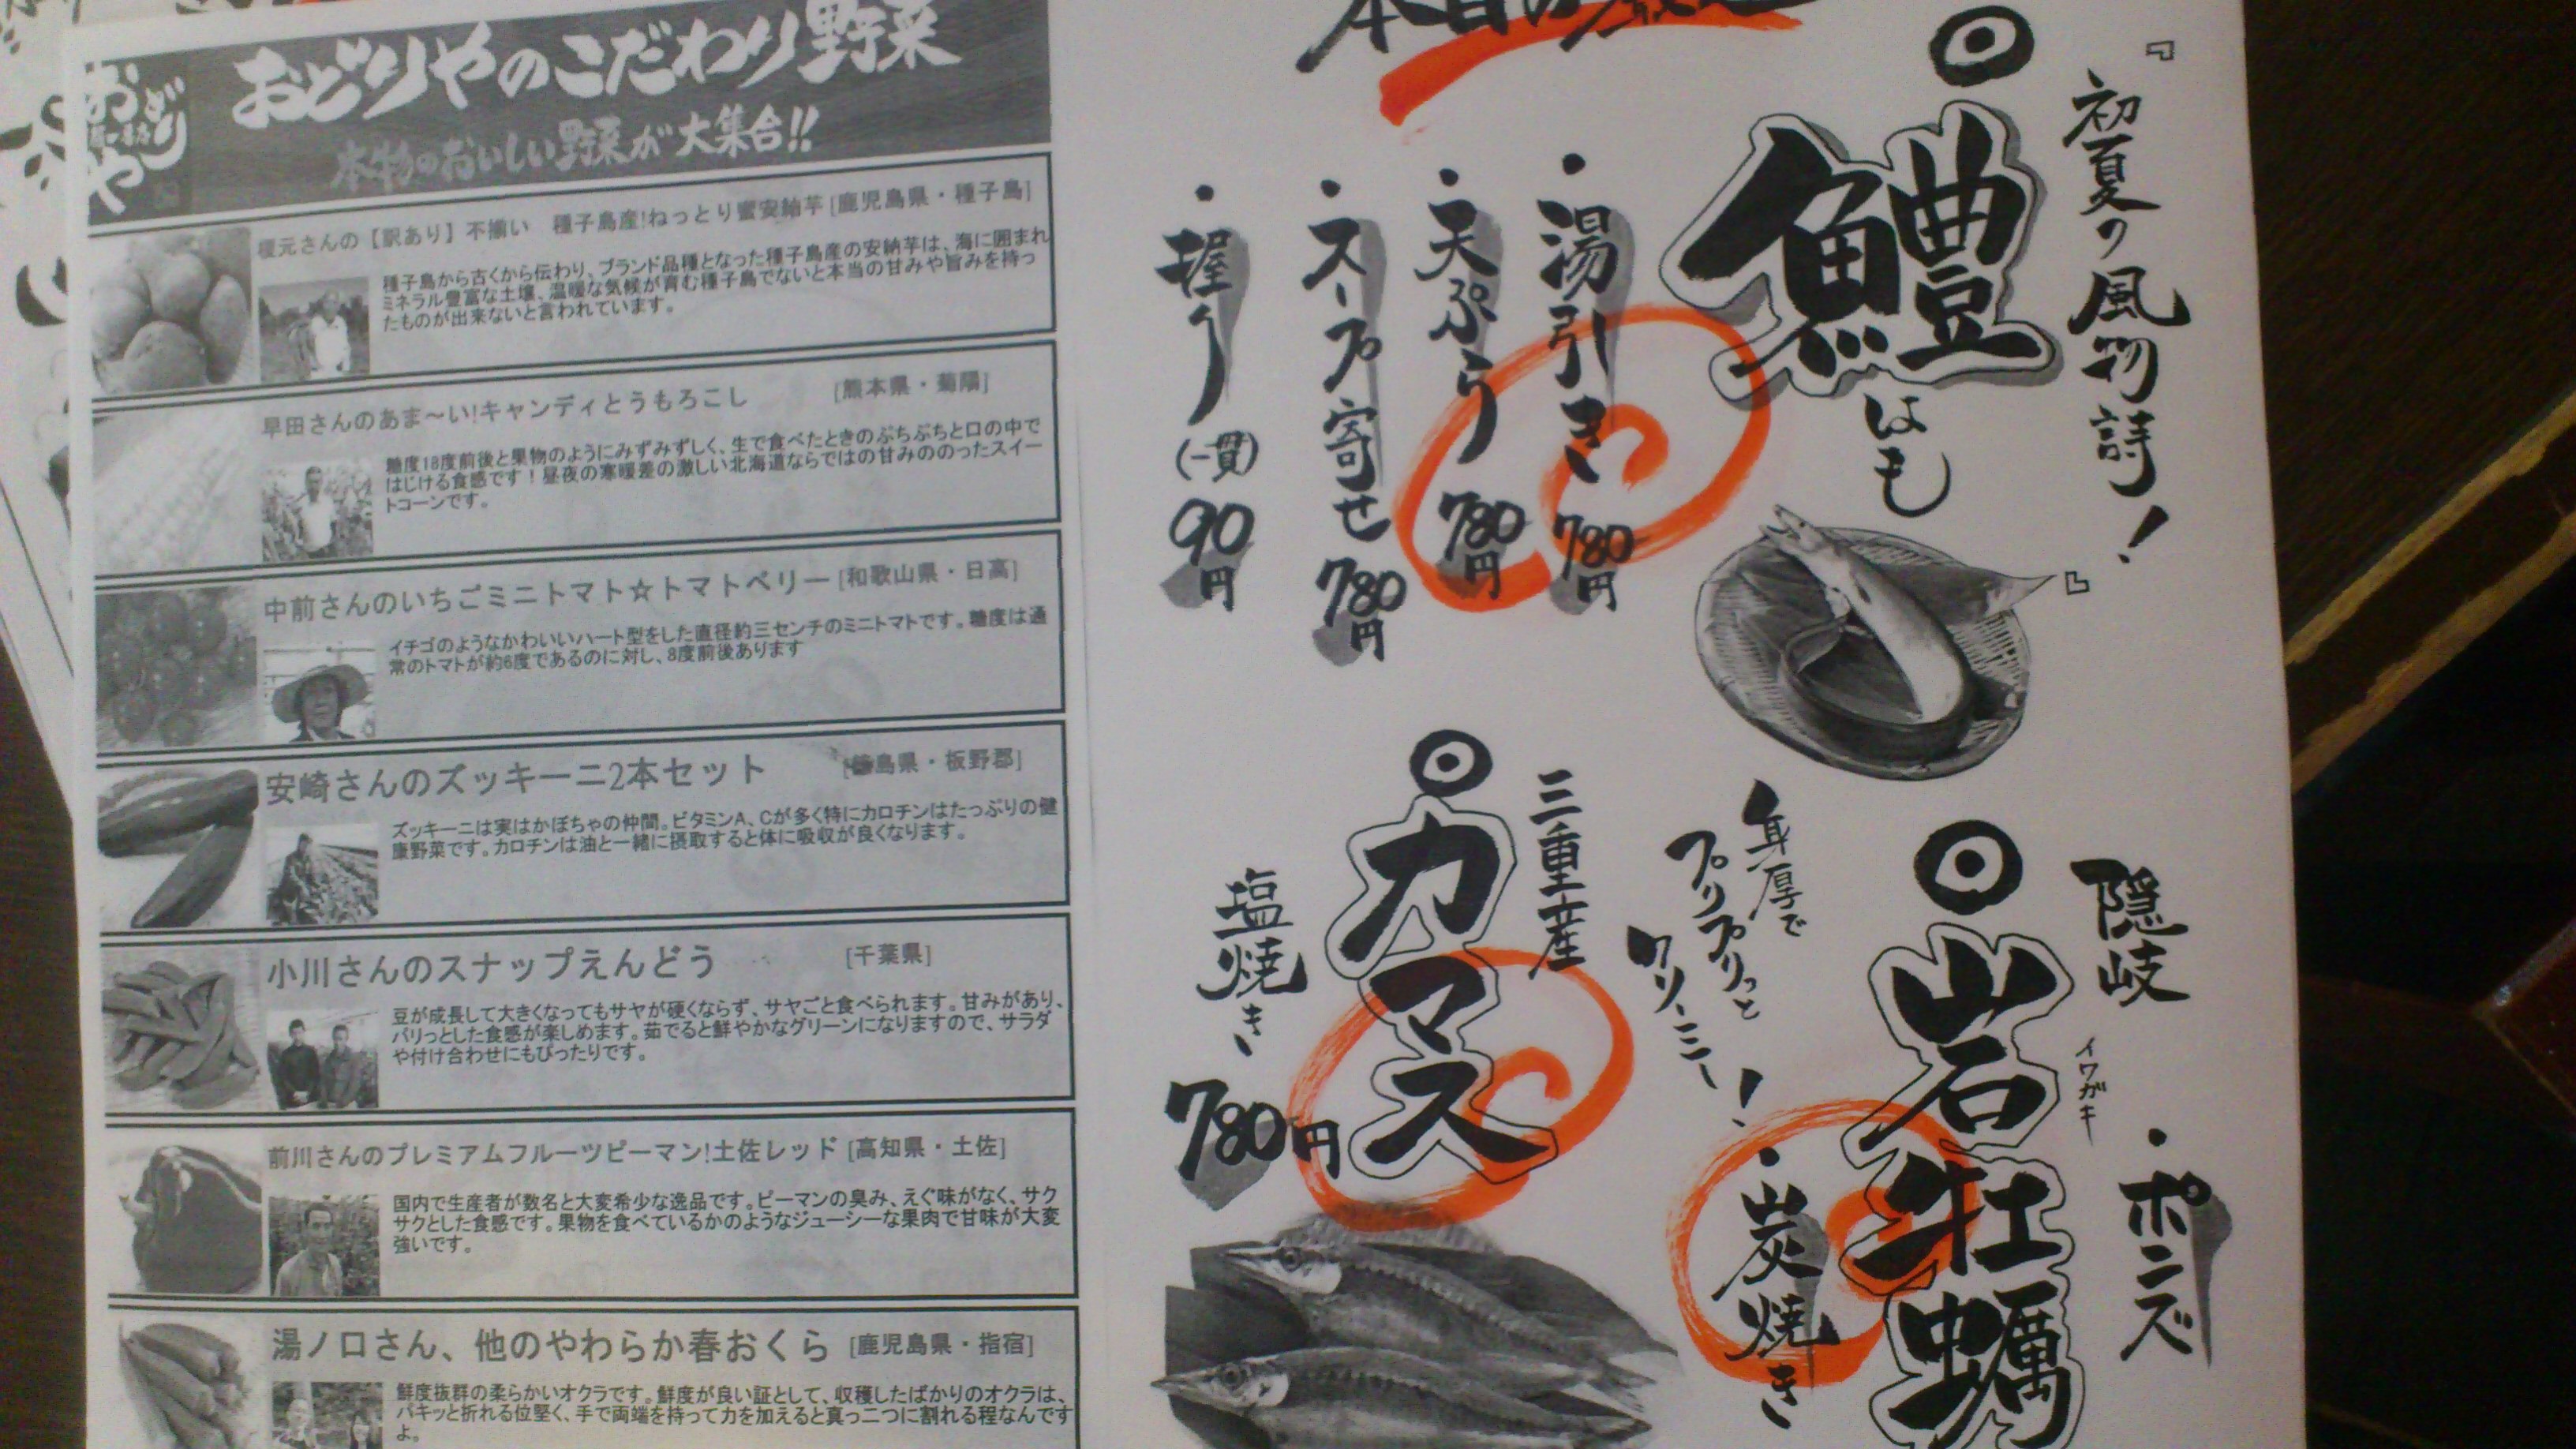 おどりや
おどりやのこだわり野菜
本物のおいしい野菜が大集合!!
榎元さんの【訳あり】不揃い 種子島産!ねっとり蜜安納芋[鹿児島県・種子島]
種子島から古くから伝わり、ブランド品種となった種子島産の安納芋は、海に囲まれ
ミネラル豊富な土壌、温暖な気候が育む種子島でないと本当の甘みや旨みを持っ
たものが出来ないと言われています。
早田さんのあま〜い!キャンディとうもろこし [熊本県・菊陽]
糖度18度前後と果物のようにみずみずしく、生で食べたときのぷちぷちと口の中で
はじける食感です！昼夜の寒暖差の激しい北海道ならではの甘みののったスイー
トコーンです。
中前さんのいちごミニトマト☆トマトベリー[和歌山県・日高]
イチゴのようなかわいいハート型をした直径約三センチのミニトマトです。糖度は通
常のトマトが約6度であるのに対し、8度前後あります
安崎さんのズッキーニ2本セット [徳島県・板野郡]
ズッキーニは実はかぼちゃの仲間。ビタミンA、Cが多く特にカロチンはたっぷりの健
康野菜です。カロチンは油と一緒に摂取すると体に吸収が良くなります。
小川さんのスナップえんどう [千葉県]
豆が成長して大きくなってもサヤが硬くならず、サヤごと食べられます。甘みがあり、
パリっとした食感が楽しめます。茹でると鮮やかなグリーンになりますので、サラダ
や付け合わせにもぴったりです。
前川さんのプレミアムフルーツピーマン!土佐レッド [高知県・土佐]
国内で生産者が数名と大変希少な逸品です。ピーマンの臭み、えぐ味がなく、サク
サクとした食感です。果物を食べているかのようなジューシーな果肉で甘味が大変
強いです。
湯ノ口さん、他のやわらか春おくら [鹿児島県・指宿]
鮮度抜群の柔らかいオクラです。鮮度が良い証として、収穫したばかりのオクラは、
パキッと折れる位堅く、手で両端を持って力を加えると真っ二つに割れる程なんです
よ。
『初夏の風物詩！』
◎鱧はも
・湯引き 780円
・天ぷら 780円
・スープ寄せ 780円
・握り(一貫) 90円
隠岐
イワガキ
◎岩牡蠣
・ポンズ
・炭焼き
身厚で
プリプリっと
クリーミー！
三重産
◎カマス
塩焼き
780円